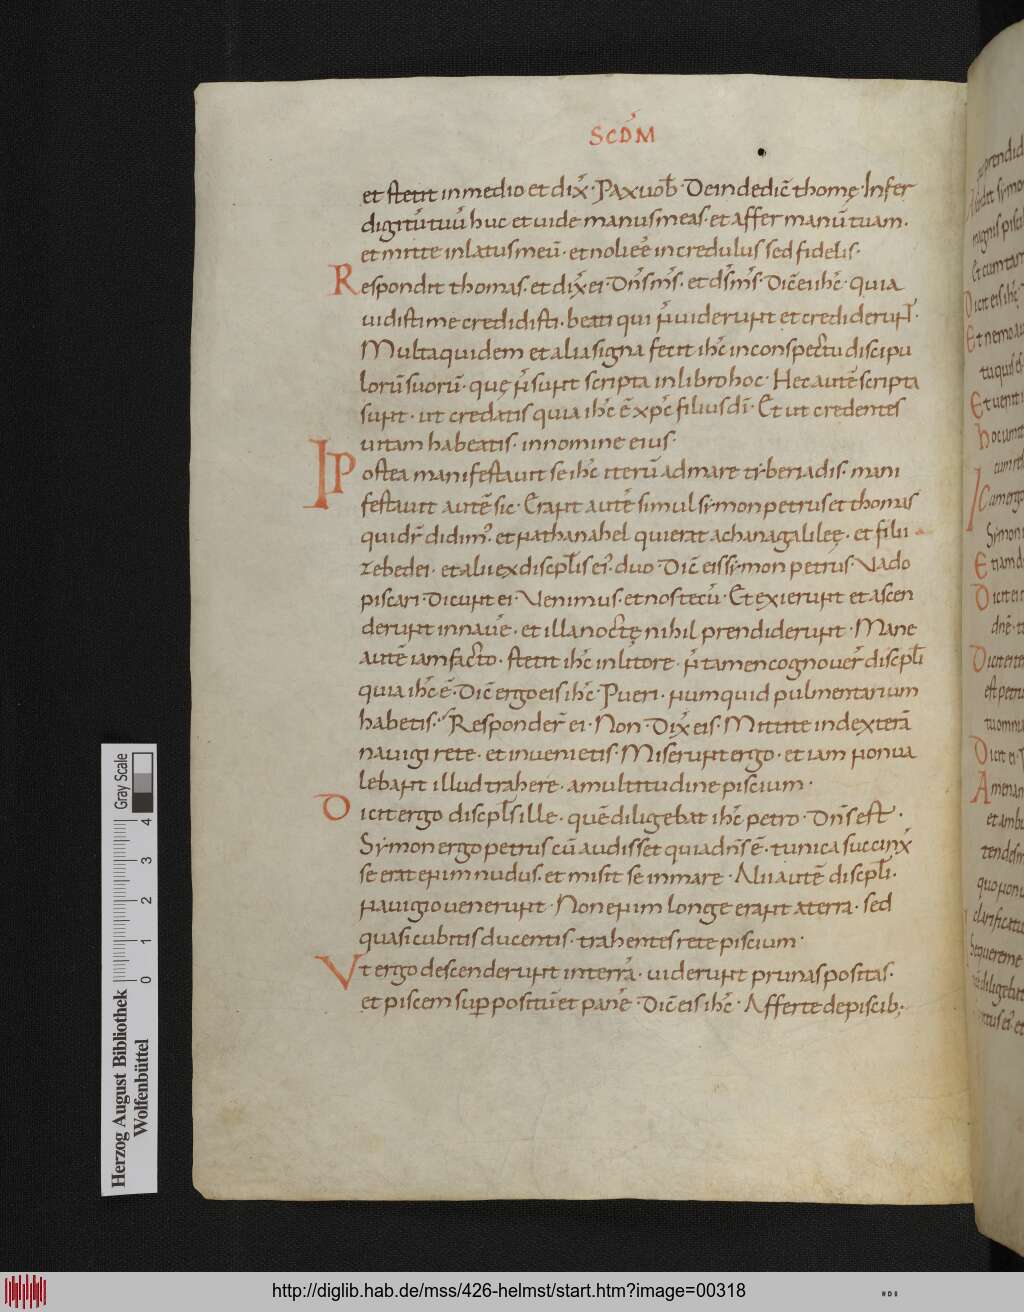 SCDM
et stetit in medio et dix̄· Pax uob̄· Deinde dic̄ thomę· Infer
digitū tuū huc et uide manus meas· et affer manū tuam·
et mitte in latus meū· et noli eē incredulus sed fidelis·
Respondit thomas· et dix̄ ei· Dn̄s m̄s· et d̄s m̄s· Dic̄ ei ih̄c· quia
uidisti me credidisti· beati qui n̄ uiderunt et crediderun̄t·
Multa quidem et alia signa fecit ih̄c in conspectu discipu
lorū suorū· quę n̄ sunt scripta in libro hoc· Hec autē scripta
sunt· ut credatis quia ih̄c ē xp̄c filius dī· Et ut credentes
uitam habeatis· in nomine eius·
Postea manifestauit se ih̄c iterū ad mare tyberiadis· mani
festauit autē sic· Erant autē simul symon petrus et thomas
qui dr̄ didim᾽· et nathanahel qui erat a chana galileę· et filii
zebedei· et alii ex discipl̄is ei᾽· duo· Dic̄ eis symon petrus· Vado
piscari· Dicunt ei· Venimus· et nos tecū· Et exierunt et ascen
derunt in nauē· et illa noctę nihil prendiderunt· Mane
autē iam facto· stetit ih̄c in litore· n̄ tamen cognouer̄ discpl̄i
quia ih̄c ē· Dic̄ ergo eis ih̄c· Pueri· numquid pulmentarium
habetis· Responder̄ ei· Non· Dix̄ eis· Mittite in dexterā
nauigi rete· et inuenietis· Miserunt ergo· et iam non ua
lebant illud trahere· a multitudine piscium·
Dicit ergo discpl̄s ille· quē diligebat ih̄c petro· Dn̄s est·
Symon ergo petrus cū audisset quia dn̄s ē· tunica succinx̄
se erat enim nudus· et misit se in mare· Alii autē discpl̄i·
nauigio uenerunt· Non enim longe erant a terra· sed
quasi cubitis ducentis· trahentes rete piscium·
Vt ergo descenderunt in terrā· uiderunt prunas positas·
et piscem sup̄positū et panē· Dic̄ eis ih̄c· Afferte de piscib;
Gray Scale
0 1 2 3 4
Herzog August Bibliothek
Wolfenbüttel
http://diglib.hab.de/mss/426-helmst/start.htm?image=00318